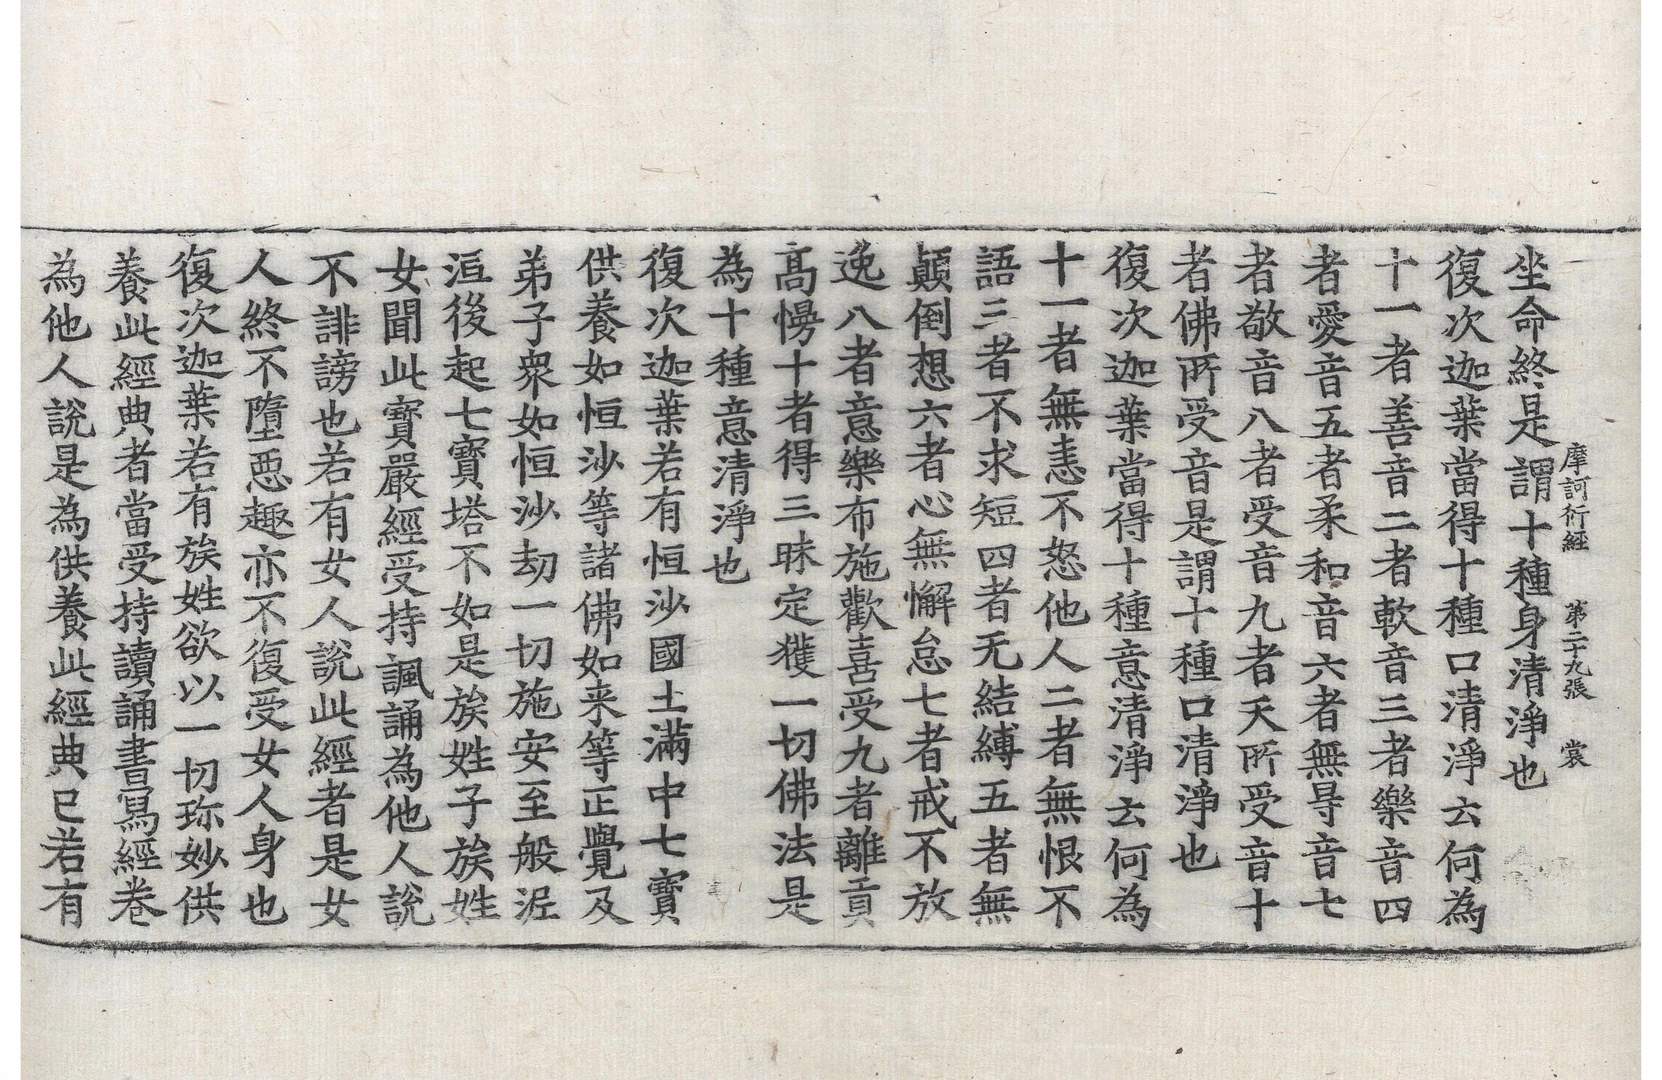 摩訶衍經 第二十九張 裳
坐命終是謂十種身清淨也
復次迦葉當得十種口清淨云何為
十一者善音二者軟音三者樂音四
者愛音五者柔和音六者無㝵音七
者敬音八者受音九者天所受音十
者佛所受音是謂十種口清淨也
復次迦葉當得十種意清淨云何為
十一者無恚不怒他人二者無恨不
語三者不求短四者无結縛五者無
顛倒想六者心無懈怠七者戒不放
逸八者意樂布施歡喜受九者離貢
高慢十者得三昧定獲一切佛法是
為十種意清淨也
復次迦葉若有恒沙國土滿中七寶
供養如恒沙等諸佛如来等正覺及
弟子衆如恒沙劫一切施安至般泥
洹後起七寶塔不如是族姓子族姓
女聞此寶嚴經受持諷誦為他人說
不誹謗也若有女人說此經者是女
人終不墮惡趣亦不復受女人身也
復次迦葉若有族姓欲以一切珎妙供
養此經典者當受持讀誦書寫經卷
為他人說是為供養此經典已若有